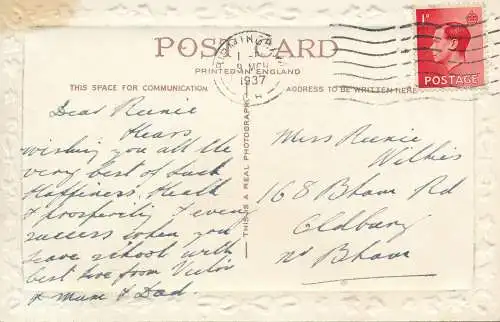 POST CARD
PRINTED IN ENGLAND
THIS SPACE FOR COMMUNICATION
ADDRESS TO BE WRITTEN HERE
THIS IS A REAL PHOTOGRAPH
1D
POSTAGE
BIRMINGHAM
1937
Dear Reenie
Hears
wishing you all the
very best of Luck
Happiness, Health
& prosperity & every
success when you
leave school with
best love from Victor
& Mum & Dad.
Miss Reenie
Wilkes
168 Bham Rd
Oldbury
Nr Bham